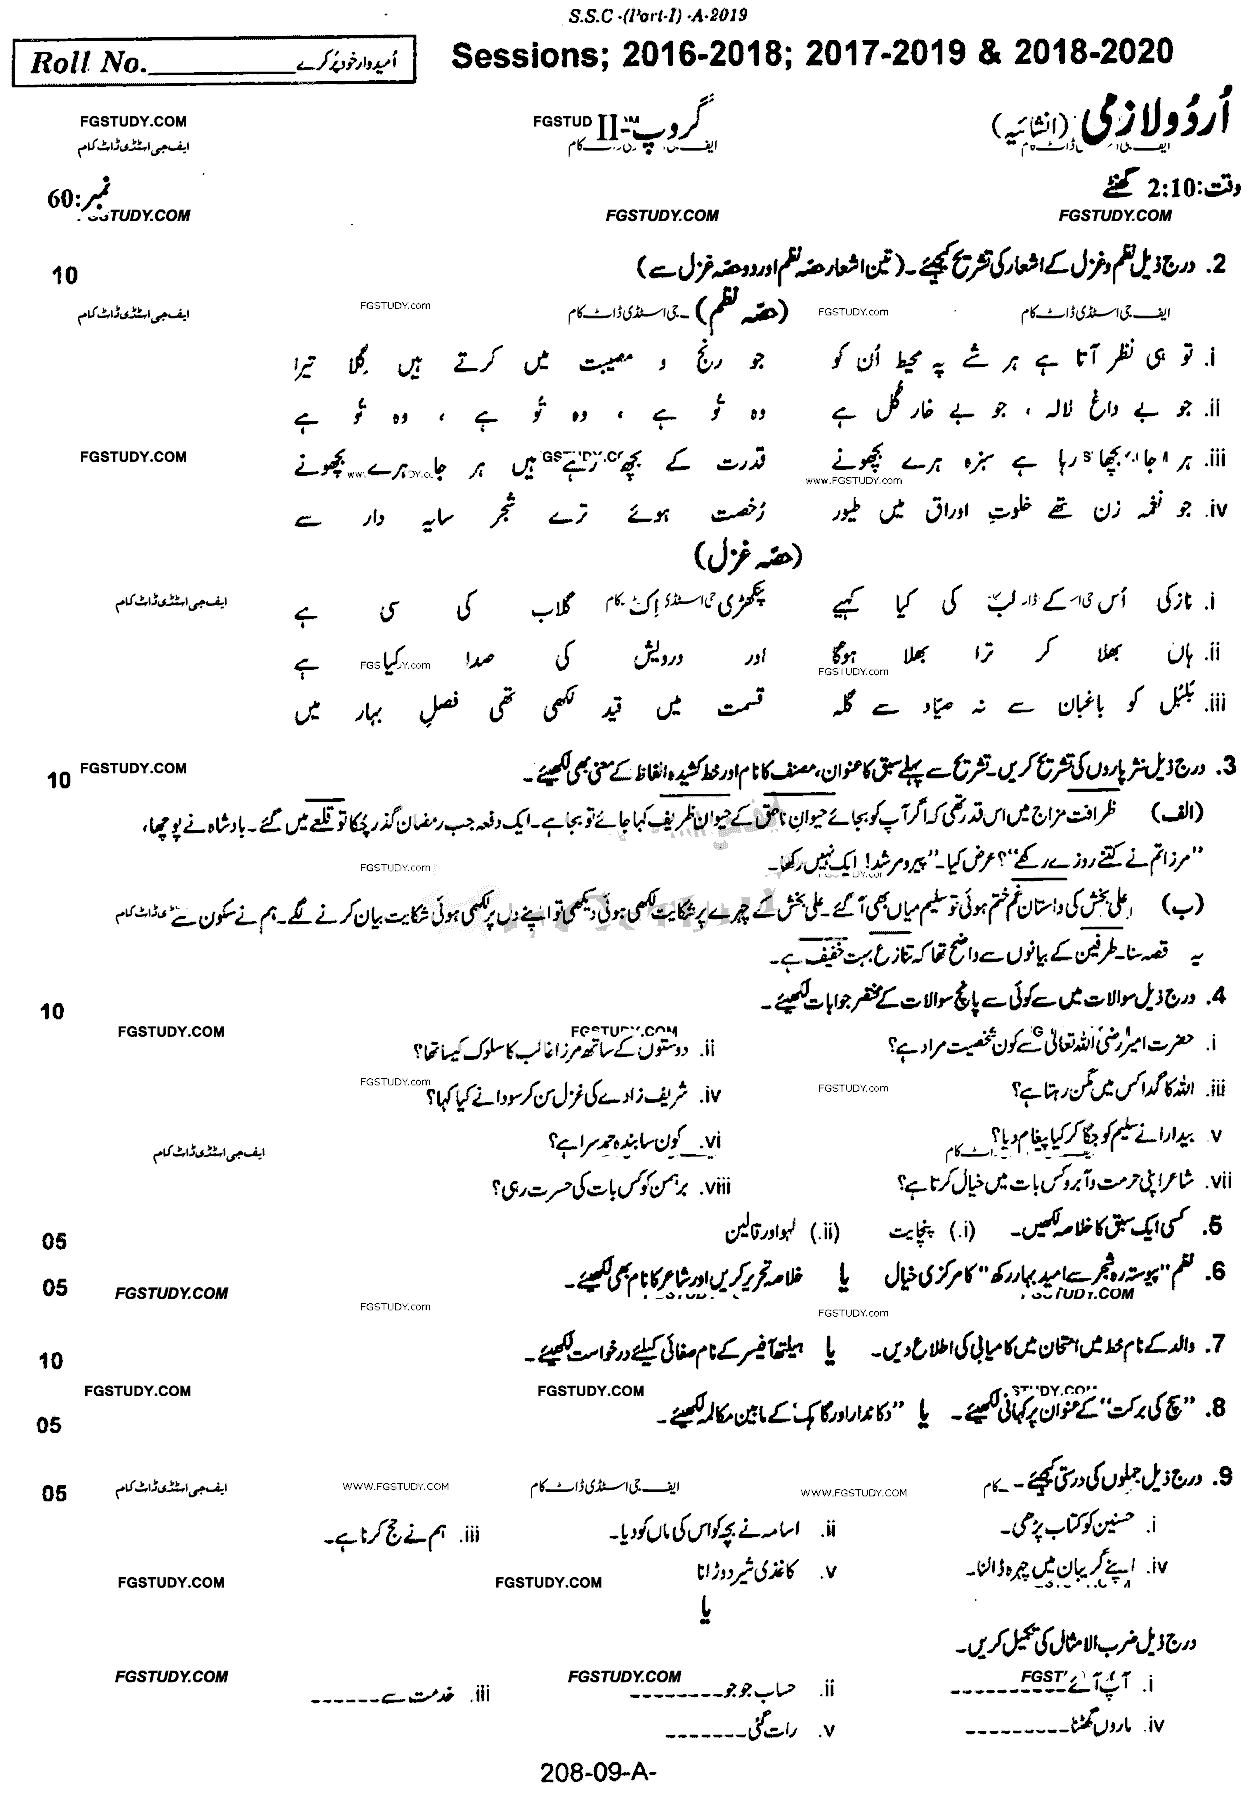 S.S.C -(Part-I) -A-2019
Roll No.__________ امیدوار خود پُر کرے
Sessions; 2016-2018; 2017-2019 & 2018-2020
اُردو لازمی (انشائیہ) گروپ-II
FGSTUDY.COM FGSTUD
ایف جی اسٹڈی ڈاٹ کام
وقت: 2:10 گھنٹے نمبر: 60
FGSTUDY.COM FGSTUDY.COM
2. درج ذیل نظم و غزل کے اشعار کی تشریح کیجئے۔ (تین اشعار حصّہ نظم اور دو حصّہ غزل سے) 10
(حصّہ نظم)
FGSTUDY.com FGSTUDY.com
i. تو ہی نظر آتا ہے ہر شے پہ محیط اُن کو جو رنج و مصیبت میں کرتے ہیں گِلا تیرا
ii. جو بے داغ لالہ ، جو بے خار گُل ہے وہ تُو ہے ، وہ تُو ہے ، وہ تُو ہے
iii. ہر جا بچھا رہا ہے سبزہ ہرے بچھونے قدرت کے بچھ رہے ہیں ہر جا ہرے بچھونے
FGSTUDY.COM www.FGSTUDY.com
iv. جو نغمہ زن تھے خلوتِ اوراق میں طیور رُخصت ہوئے ترے شجرِ سایہ دار سے
(حصّہ غزل)
i. نازکی اُس کے لب کی کیا کہیے پنکھڑی اِک گلاب کی سی ہے
ایف جی اسٹڈی ڈاٹ کام
ii. ہاں بھلا کر ترا بھلا ہوگا اور درویش کی صدا کیا ہے
FGSTUDY.com
iii. بُلبُل کو باغباں سے نہ صیّاد سے گلہ قسمت میں قید لکھی تھی فصلِ بہار میں
3. درج ذیل نثر پاروں کی تشریح کریں۔ تشریح سے پہلے سبق کا عنوان، مصنف کا نام اور خط کشیدہ الفاظ کے معنی بھی لکھیئے۔ 10
FGSTUDY.COM
(الف) ظرافت مزاج میں اس قدر تھی کہ اگر آپ کو بجائے حیوانِ ناطق کے حیوانِ ظریف کہا جائے تو بجا ہے۔ ایک دفعہ جب رمضان گذر چُکا تو قلعے میں گئے۔ بادشاہ نے پوچھا،
"مرزا تم نے کتنے روزے رکھے"؟ عرض کیا۔ "پیر و مرشد! ایک نہیں رکھا۔
FGSTUDY.com
(ب) علی بخش کی داستانِ غم ختم ہوئی تو سلیم میاں بھی آ گئے۔ علی بخش کے چہرے پر شکایت لکھی ہوئی دیکھی تو اپنے دل پر لکھی ہوئی شکایت بیان کرنے لگے۔ ہم نے سکون سے
یہ قصہ سنا۔ طرفین کے بیانوں سے واضح تھا کہ تنازع بہت خفیف ہے۔
4. درج ذیل سوالات میں سے کوئی سے پانچ سوالات کے مختصر جوابات لکھیئے۔ 10
FGSTUDY.COM FGSTUDY.COM
i. حضرت امیر رضی اللہ تعالیٰ سے کون شخصیت مراد ہے؟ ii. دوستوں کے ساتھ مرزا غالب کا سلوک کیسا تھا؟
FGSTUDY.com FGSTUDY.com
iii. اللہ کا گدا کس میں مگن رہتا ہے؟ iv. شریف زادے کی غزل سن کر سودا نے کیا کہا؟
v. بیدارا نے سلیم کو جگا کر کیا پیغام دیا؟ vi. کون سا بندہ حمد سرا ہے؟
ایف جی اسٹڈی ڈاٹ کام
vii. شاعر اپنی حرمت و آبرو کس بات میں خیال کرتا ہے؟ viii. برہمن کو کس بات کی حسرت رہی؟
5. کسی ایک سبق کا خلاصہ لکھیں۔ (i.) پنچایت (ii.) لہو اور قالین 05
6. نظم "پیوستہ رہ شجر سے امید بہار رکھ" کا مرکزی خیال یا خلاصہ تحریر کریں اور شاعر کا نام بھی لکھیئے۔ 05
FGSTUDY.COM FGSTUDY.COM
FGSTUDY.com FGSTUDY.com
7. والد کے نام خط میں امتحان میں کامیابی کی اطلاع دیں۔ یا ہیلتھ آفیسر کے نام صفائی کیلئے درخواست لکھیئے۔ 10
FGSTUDY.COM FGSTUDY.COM
8. "سچ کی برکت" کے عنوان پر کہانی لکھیئے۔ یا "دکاندار اور گاہک" کے مابین مکالمہ لکھیئے۔ 05
9. درج ذیل جملوں کی درستی کیجئے۔ 05
WWW.FGSTUDY.COM WWW.FGSTUDY.COM
ایف جی اسٹڈی ڈاٹ کام
i. حسنین کو کتاب پڑھی۔ ii. اسامہ نے بچہ کو اس کی ماں کو دیا۔ iii. ہم نے حج کرنا ہے۔
iv. اپنے گریبان میں چہرہ ڈالنا۔ v. کاغذی شیر دوڑانا
FGSTUDY.COM FGSTUDY.COM
یا
درج ذیل ضرب الامثال کی تکمیل کریں۔
FGSTUDY.COM FGSTUDY.COM
i. آپ آئے---------- ii. حساب جو جو-------- iii. خدمت سے------
iv. ماروں گھٹنا---------- v. رات گئی-------
208-09-A-